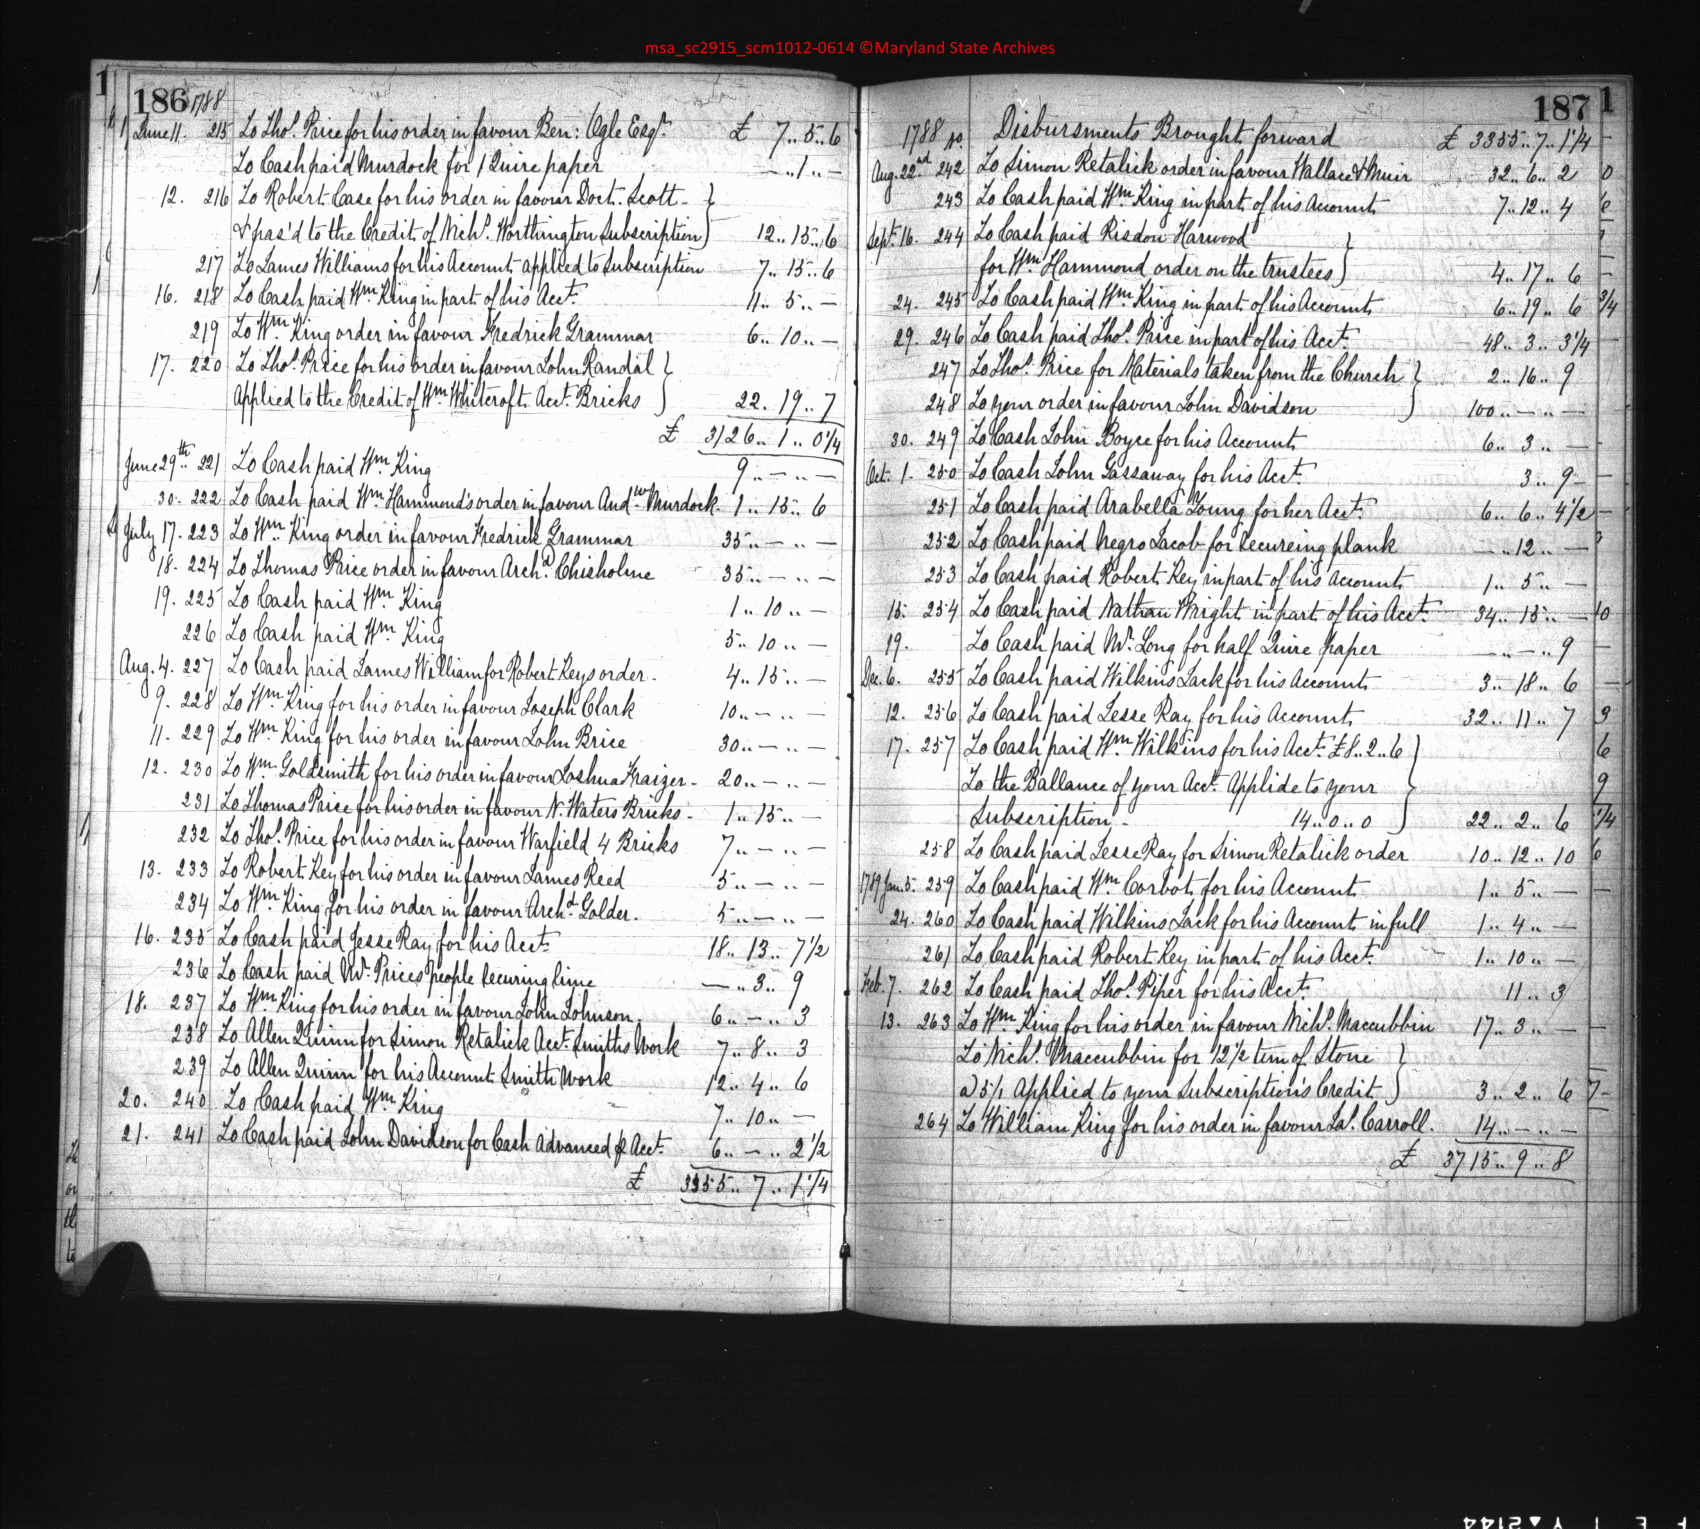 msa_sc2915_scm1012-0614 ©Maryland State Archives
186 1788
June 11. 215 To Thos. Price for his order in favour Ben: Ogle Esqr. £ 7..5..6
To Cash paid Murdock for 1 Quire paper —..1..—
12. 216 To Robert Case for his order in favour Doct. Scott
& pas'd to the Credit of Nichs. Worthington Subscription } 12..15..6
217 To James Williams for his Account applied to Subscription 7..15..6
16. 218 To Cash paid Wm. King in part of his Acct. 11..5..—
219 To Wm. King order in favour Fredrick Grammar 6..10..—
17. 220 To Thos. Price for his order in favour John Randal }
Applied to the Credit of Wm. Whitcroft Acct. Bricks } 22..19..7
£ 3126..1..0 1/4
June 29th. 221 To Cash paid Wm. King 9..—..—
30. 222 To Cash paid Wm. Hammond's order in favour Andw. Murdock. 1..15..6
July 17. 223 To Wm. King order in favour Fredrick Grammar 35..—..—
18. 224 To Thomas Price order in favour Archd. Chisholme 35..—..—
19. 225 To Cash paid Wm. King 1..10..—
226 To Cash paid Wm. King 5..10..—
Aug. 4. 227 To Cash paid James William for Robert Keys order. 4..15..—
9. 228 To Wm. King for his order in favour Joseph Clark 10..—..—
11. 229 To Wm. King for his order in favour John Brice 30..—..—
12. 230 To Wm. Goldsmith for his order in favour Joshua Fraizer. 20..—..—
231 To Thomas Price for his order in favour N. Waters Bricks. 1..15..—
232 To Thos. Price for his order in favour Warfield 4 Bricks 7..—..—
13. 233 To Robert Key for his order in favour James Reed 5..—..—
234 To Wm. King for his order in favour Archd. Golder. 5..—..—
16. 235 To Cash paid Jesse Ray for his Acct. 18..13..7 1/2
236 To Cash paid Mr. Prices people securing lime —..3..9
18. 237 To Wm. King for his order in favour John Johnson. 6..—..3
238 To Allen Quinn for Simon Retalick Acct. Smiths Work 7..8..3
239 To Allen Quinn for his Account Smith Work 12..4..6
20. 240 To Cash paid Wm. King 7..10..—
21. 241 To Cash paid John Davidson for Cash Advanced p Acct. 6..—..2 1/2
£ 3355..7..1 1/4
187
1788 No. Disbursments Brought forward £ 3355..7..1 1/4
Aug. 22nd 242 To Simon Retalick order in favour Wallace & Muir 32..6..2
243 To Cash paid Wm. King in part of his Account 7..12..4
Sept. 16. 244 To Cash paid Risdon Harwood }
for Wm. Hammond order on the trustees } 4..17..6
24. 245 To Cash paid Wm. King in part of his Account 6..19..6
29. 246 To Cash paid Thos. Price in part of his Acct. 48..3..3 1/4
247 To Thos. Price for Materials taken from the Church } 2..16..9
248 To your order in favour John Davidson } 100..—..—
30. 249 To Cash John Boyce for his Account 6..3..—
Oct. 1. 250 To Cash John Gassaway for his Acct. 3..9—
251 To Cash paid Arabella Young for her Acct. 6..6..4 1/2
252 To Cash paid Negro Jacob for secureing plank —..12..—
253 To Cash paid Robert Key in part of his Account 1..5..—
15. 254 To Cash paid Nathan Wright in part of his Acct. 34..15..—
19. To Cash paid Mr. Long for half Quire paper —..—..9
Dec. 6. 255 To Cash paid Wilkins Jack for his Account 3..18..6
12. 256 To Cash paid Jesse Ray for his Account 32..11..7
17. 257 To Cash paid Wm. Wilkins for his Acct. £8..2..6 }
To the Ballance of your Acct. Applide to your
Subscription 14..0..0 } 22..2..6
258 To Cash paid Jesse Ray for Simon Retalick order 10..12..10
1789 Jan. 5. 259 To Cash paid Wm. Corbot for his Account 1..5..—
24. 260 To Cash paid Wilkins Jack for his Account in full 1..4..—
261 To Cash paid Robert Key in part of his Acct. 1..10..—
Feb. 7. 262 To Cash paid Thos. Piper for his Acct. 11..3
13. 263 To Wm. King for his order in favour Nichs. Maccubbin 17..3..—
To Nichs. Maccubbin for 12 1/2 tun of Stone }
a 5/1 Applied to your Subscription's Credit } 3..2..6
264 To William King for his order in favour Ja. Carroll. 14..—..—
£ 3715..9..8